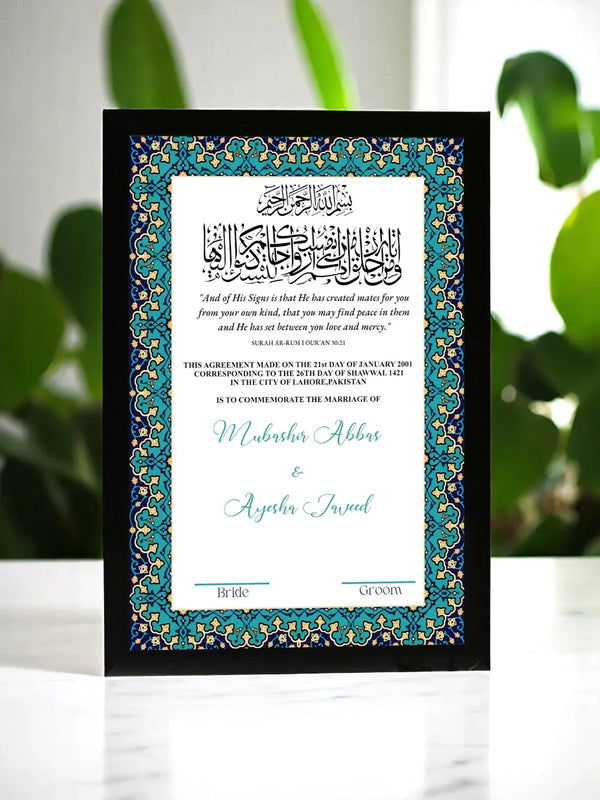 بسم الله الرحمن الرحيم
ومن آياته أن خلق لكم من أنفسكم أزواجا لتسكنوا إليها
"And of His Signs is that He has created mates for you
from your own kind, that you may find peace in them
and He has set between you love and mercy."
SURAH AR-RUM I OUR'AN 30:21
THIS AGREEMENT MADE ON THE 21st DAY OF JANUARY 2001
CORRESPONDING TO THE 26TH DAY OF SHAWWAL 1421
IN THE CITY OF LAHORE,PAKISTAN
IS TO COMMEMORATE THE MARRIAGE OF
Mubashir Abbas
&
Ayesha Javeed
Bride Groom